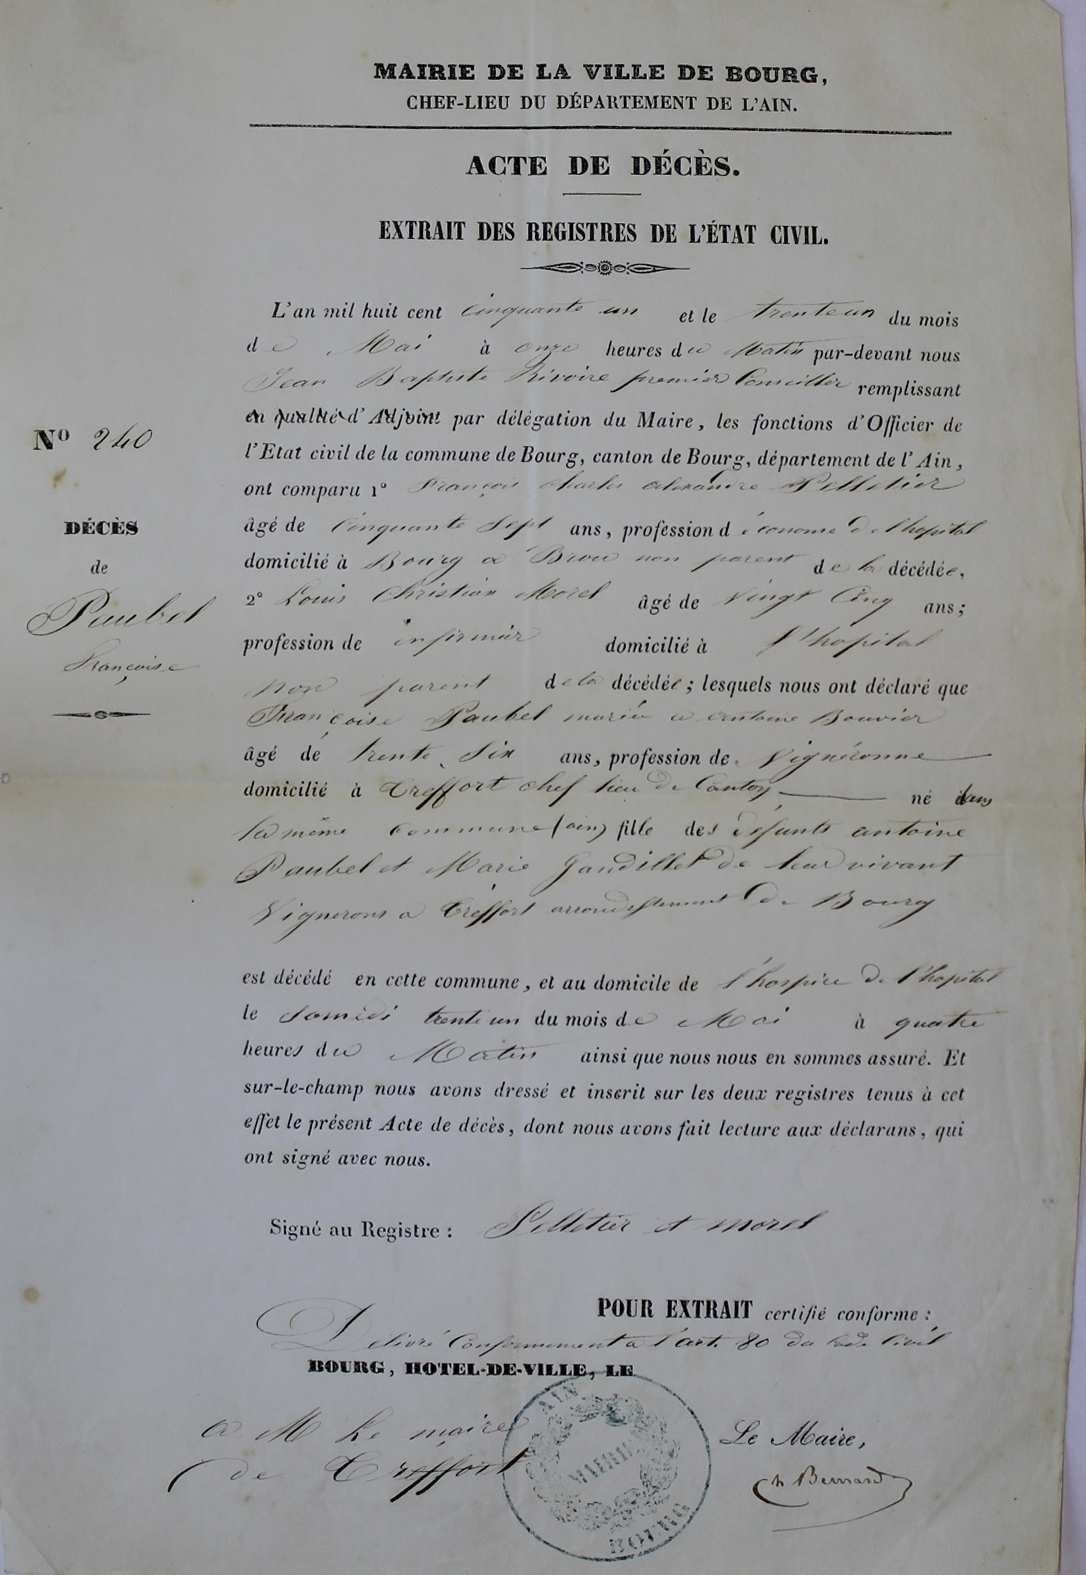 MAIRIE DE LA VILLE DE BOURG,
CHEF-LIEU DU DÉPARTEMENT DE L'AIN.
ACTE DE DÉCÈS.
EXTRAIT DES REGISTRES DE L'ÉTAT CIVIL.
L'an mil huit cent cinquante un et le trente un du mois
de Mai à onze heures du Matin par-devant nous
Jean Baptiste Rivoire premier Conseiller remplissant
en qualité d'Adjoint par délégation du Maire, les fonctions d'Officier de
l'Etat civil de la commune de Bourg, canton de Bourg, département de l'Ain,
ont comparu 1° François Charles alexandre Pelletier
âgé de Cinquante Sept ans, profession d économe de l'hopital
domicilié à Bourg a Brou non parent de la décédée,
2° Louis Christian Morel âgé de Vingt Cinq ans;
profession de infirmier domicilié à l'hopital
non parent de la décédée; lesquels nous ont déclaré que
Françoise Paubel mariée a antoine Bouvier
âgé de trente Six ans, profession de Vigneronne
domicilié à Treffort chef lieu de Canton né dans
la même commune (ain) fille des défunts antoine
Paubel et Marie Gandillet de leur vivant
Vignerons a Treffort arrondissement de Bourg
est décédé en cette commune, et au domicile de l'hospice de l'hopital
le Samedi trente un du mois de Mai à quatre
heures du Matin ainsi que nous nous en sommes assuré. Et
sur-le-champ nous avons dressé et inscrit sur les deux registres tenus à cet
effet le présent Acte de décès, dont nous avons fait lecture aux déclarans, qui
ont signé avec nous.
Signé au Registre: Pelletier et morel
POUR EXTRAIT certifié conforme:
Délivré Conformément a l'art. 80 du Code Civil
BOURG, HOTEL-DE-VILLE, LE
a M le maire
de Treffort
Le Maire,
Bernard
N° 240
DÉCÈS
de
Paubel
Françoise
AIN
MAIRIE
BOURG